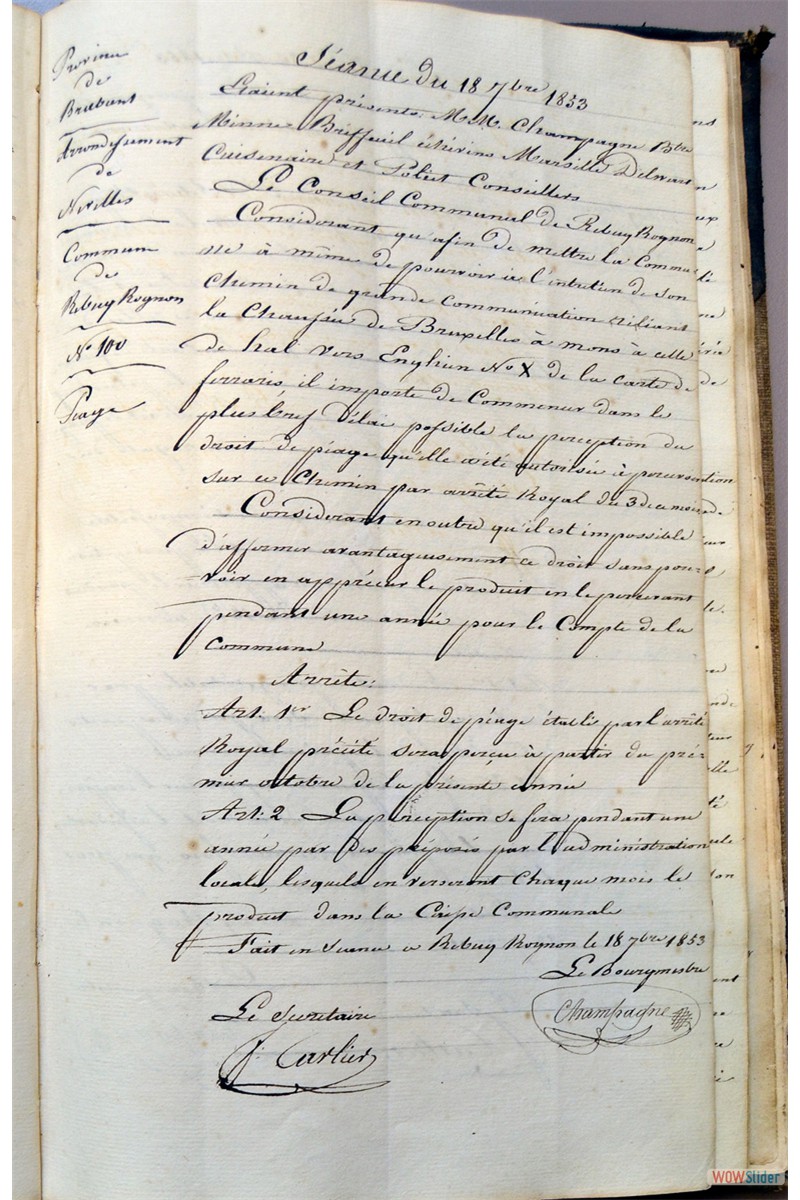 Province
de
Brabant
Arrondissement
de
Nivelles
Commune
de
Rebecq Rognon
No 100
Péage
Séance du 18 7bre 1853
Etaient présents M.M. Champagne Btre
Minne Briffeuil échévins Marsille Delwart
Cuisenaire et Poliet Conseillers
Le Conseil Communal de Rebecq Rognon
Considerant qu'afin de mettre la Commu
ne à même de pourvoir à l'entretien de son
Chemin de grande Communication reliant
la Chaussée de Bruxelles à mons à celle
de hal vers Enghien No X de la carte de
ferraris, il importe de Commencer dans le
plus bref délai possible la perception du
droit de péage qu'elle a été autorisée à
sur ce Chemin par arrêté Royal du 3
Considerant en outre qu'il est impossible
d'affermer avantageusement ce droit sans pou
voir en apprécier le produit en le percevant
pendant une année pour le Compte de la
Commune
Arrête:
Art: 1er Le droit de péage établi par l'arrêté
Royal précité sera perçu à partir du pré-
mier octobre de la présente année
Art: 2 La perception se fera pendant une
année par des préposés par l'administration
locale, lesquels en verseront Chaque mois le
produit dans la Caisse Communale
Fait en seance a Rebecq Rognon le 18 7bre 1853
Le Bourgmestre
Champagne
Le Secretaire
J. Carlier
WOWSlider